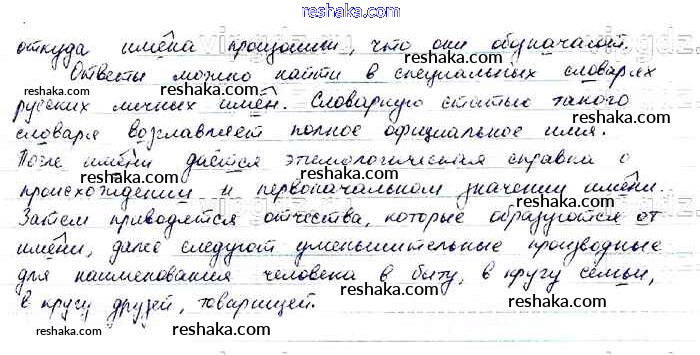 reshaka.com
откуда имена произошли, что они обозначают.
Ответы можно найти в специальных словарях
русских личных имён. Словарную статью такого
словаря возглавляет полное официальное имя.
После имени даётся этимологическая справка о
происхождении и первоначальном значении имени.
Затем приводятся отчества, которые образуются от
имени, далее следуют уменьшительные производные
для наименования человека в быту, в кругу семьи,
в кругу друзей, товарищей.